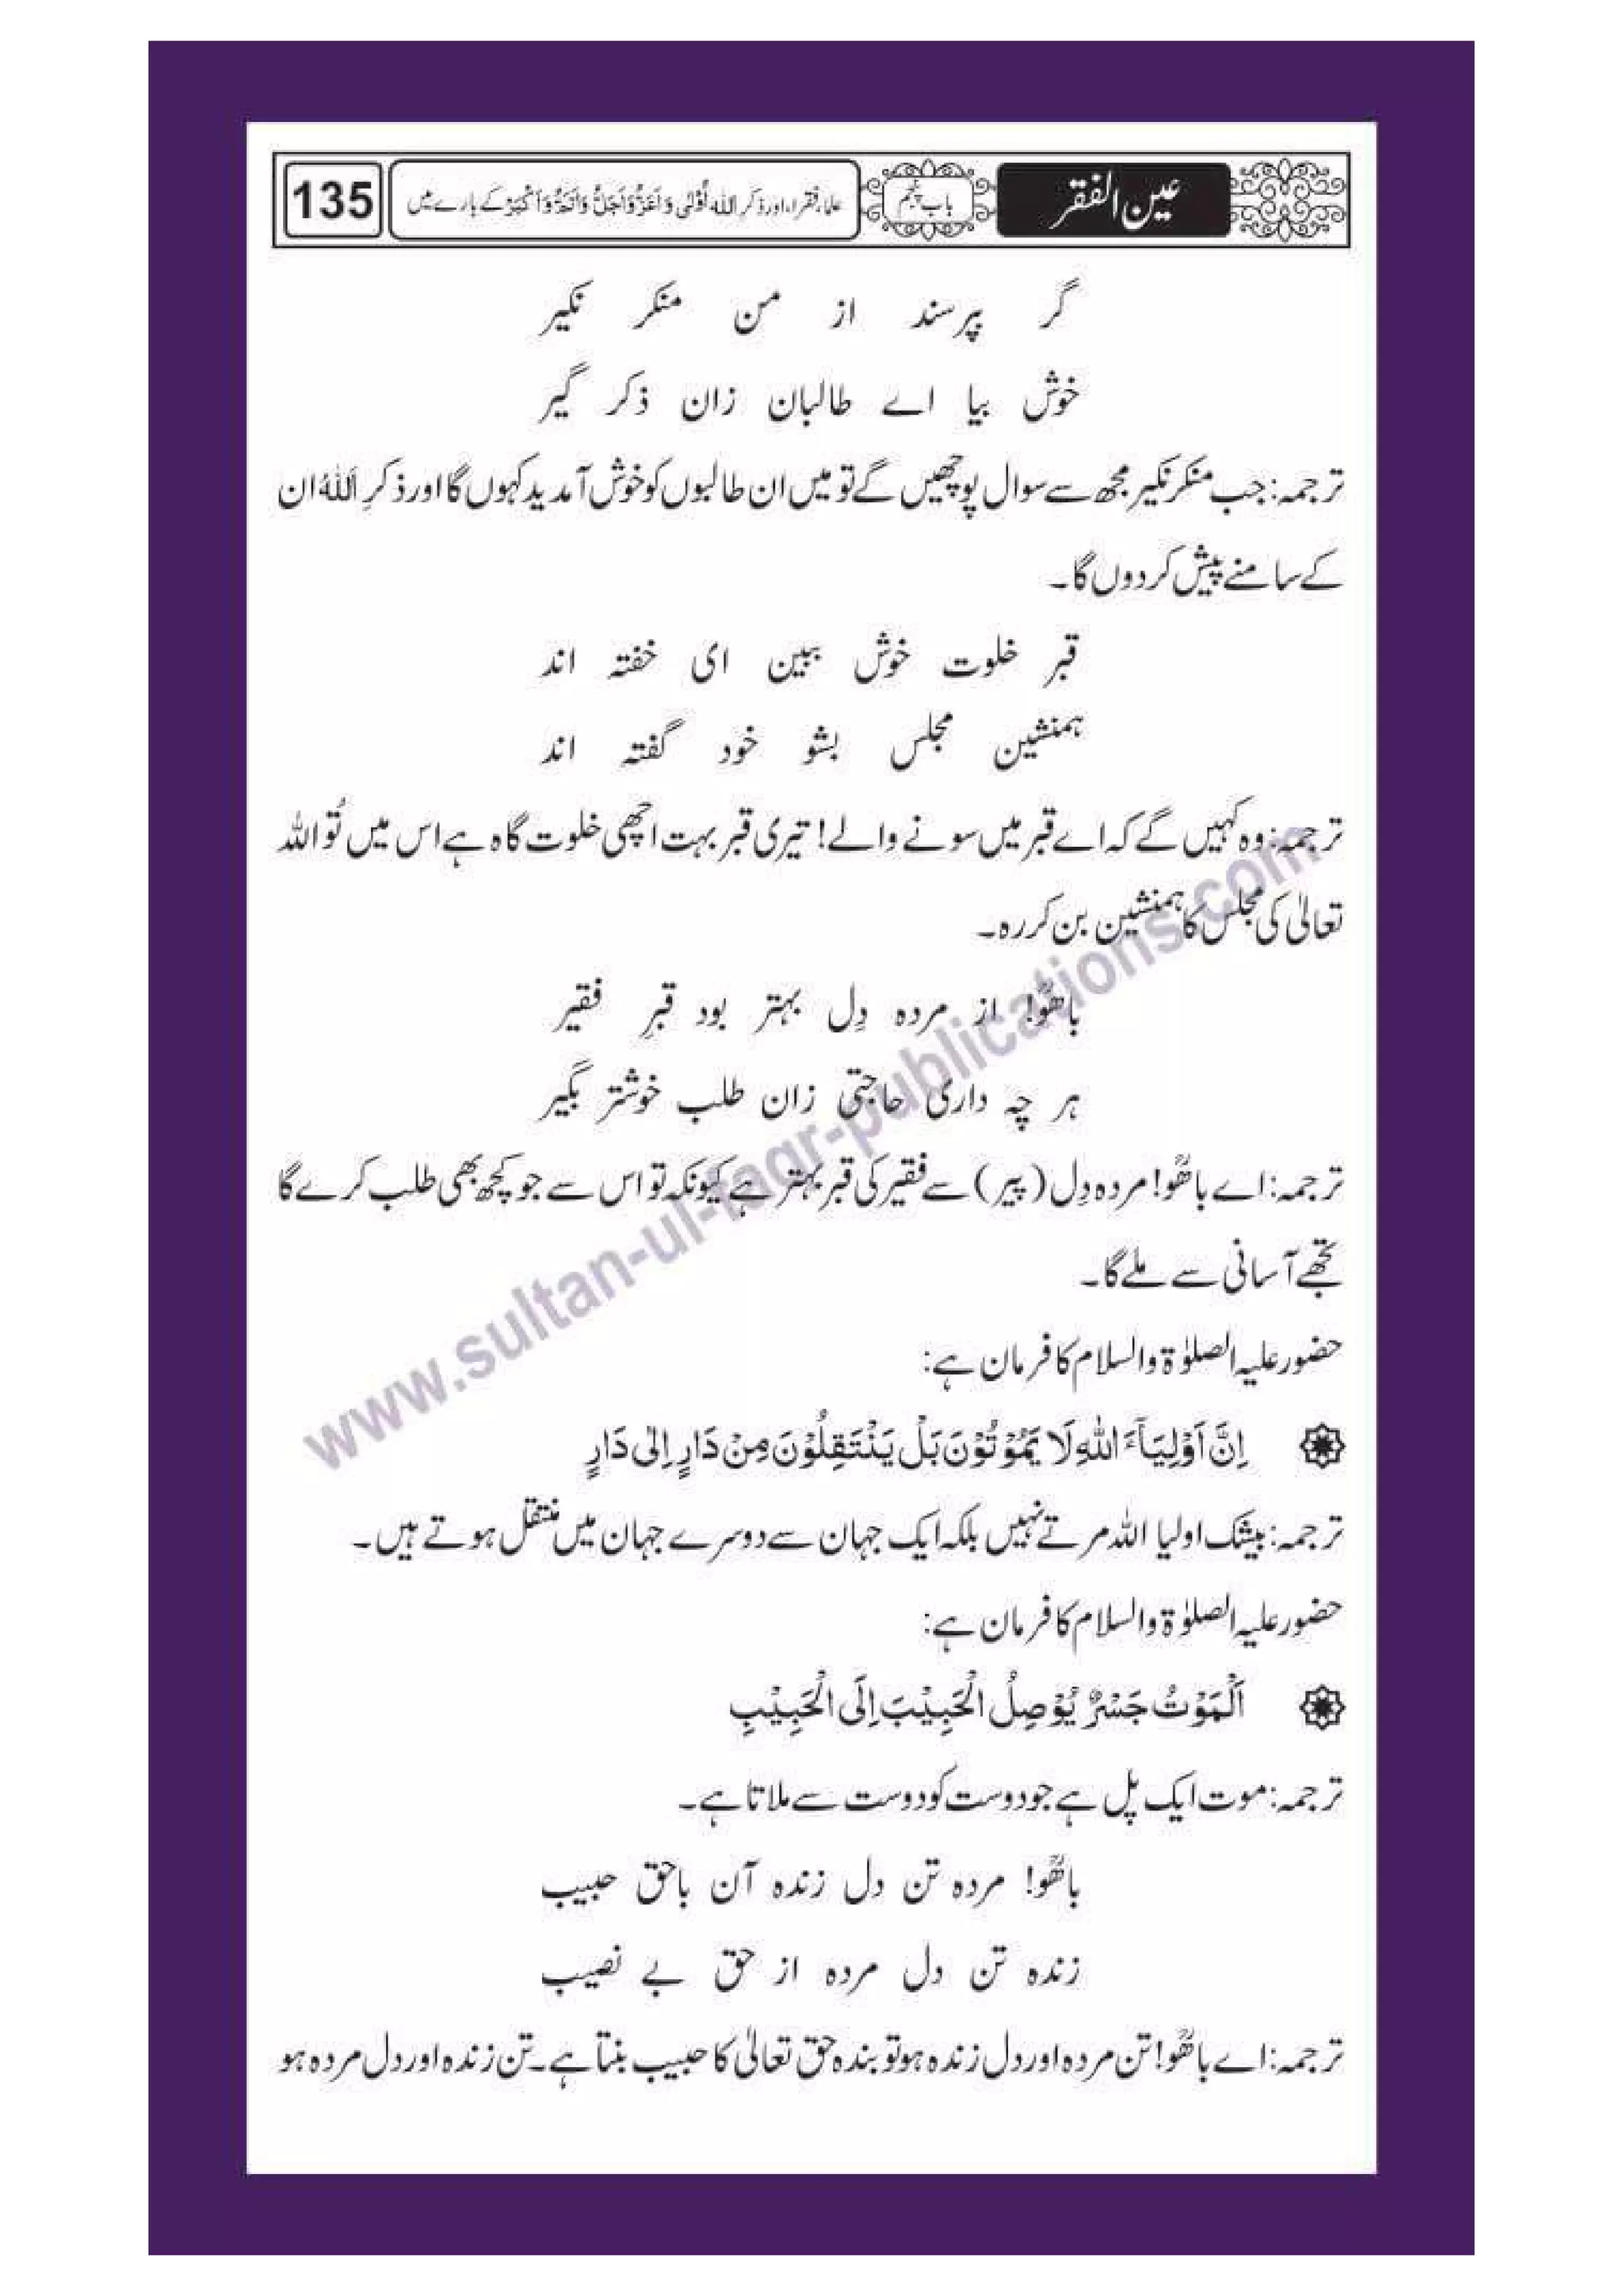 عین الفقر
باب پنجم
علما، فقراء اور ذکر اللہ اَوْلٰی وَ اَعَزُّ وَ اَجَلُّ وَ اَتَمُّ وَ اَکْبَرُ کے بارے میں
135
گر پرسند از من منکر نکیر
خوش بیا اے طالبان زان ذکر گیر
ترجمہ: جب منکر نکیر مجھ سے سوال پوچھیں گے تو میں ان طالبوں کو خوش آمدید کہوں گا اور ذکرِ اَللہُ ان
کے سامنے پیش کر دوں گا۔
قبر خلوت خوش ببین ای خفتہ اند
ہمنشین مجلس بشو خود گفتہ اند
ترجمہ: وہ کہیں گے کہ اے قبر میں سونے والے! تیری قبر بہت اچھی خلوت گاہ ہے اس میں تُو اللہ
تعالیٰ کی مجلس کا ہمنشین بن کر رہ۔
باھُوؒ! از مردہ دِل بہتر بود قبرِ فقیر
ہر چہ داری حاجتی زان طلب خوشتر بگیر
ترجمہ: اے باھُوؒ! مردہ دِل (پیر) سے فقیر کی قبر بہتر ہے کیونکہ تو اس سے جو کچھ بھی طلب کرے گا
تجھے آسانی سے ملے گا۔
حضور علیہ الصلوٰۃ والسلام کا فرمان ہے:
اِنَّ اَوْلِیَآءَ اللّٰہِ لَا یَمُوْتُوْنَ بَلْ یَنْتَقِلُوْنَ مِنْ دَارٍ اِلٰی دَارٍ
ترجمہ: بیشک اولیا اللہ مرتے نہیں بلکہ ایک جہان سے دوسرے جہان میں منتقل ہوتے ہیں۔
حضور علیہ الصلوٰۃ والسلام کا فرمان ہے:
اَلْمَوْتُ جَسْرٌ یُوْصِلُ الْحَبِیْبَ اِلَی الْحَبِیْبِ
ترجمہ: موت ایک پل ہے جو دوست کو دوست سے ملاتا ہے۔
باھُوؒ! مردہ تن دل زندہ آن باحق حبیب
زندہ تن دل مردہ از حق بے نصیب
ترجمہ: اے باھُوؒ! تن مردہ اور دل زندہ ہو تو بندہ حق تعالیٰ کا حبیب بنتا ہے۔ تن زندہ اور دل مردہ ہو
www.sultan-ul-faqr-publications.com